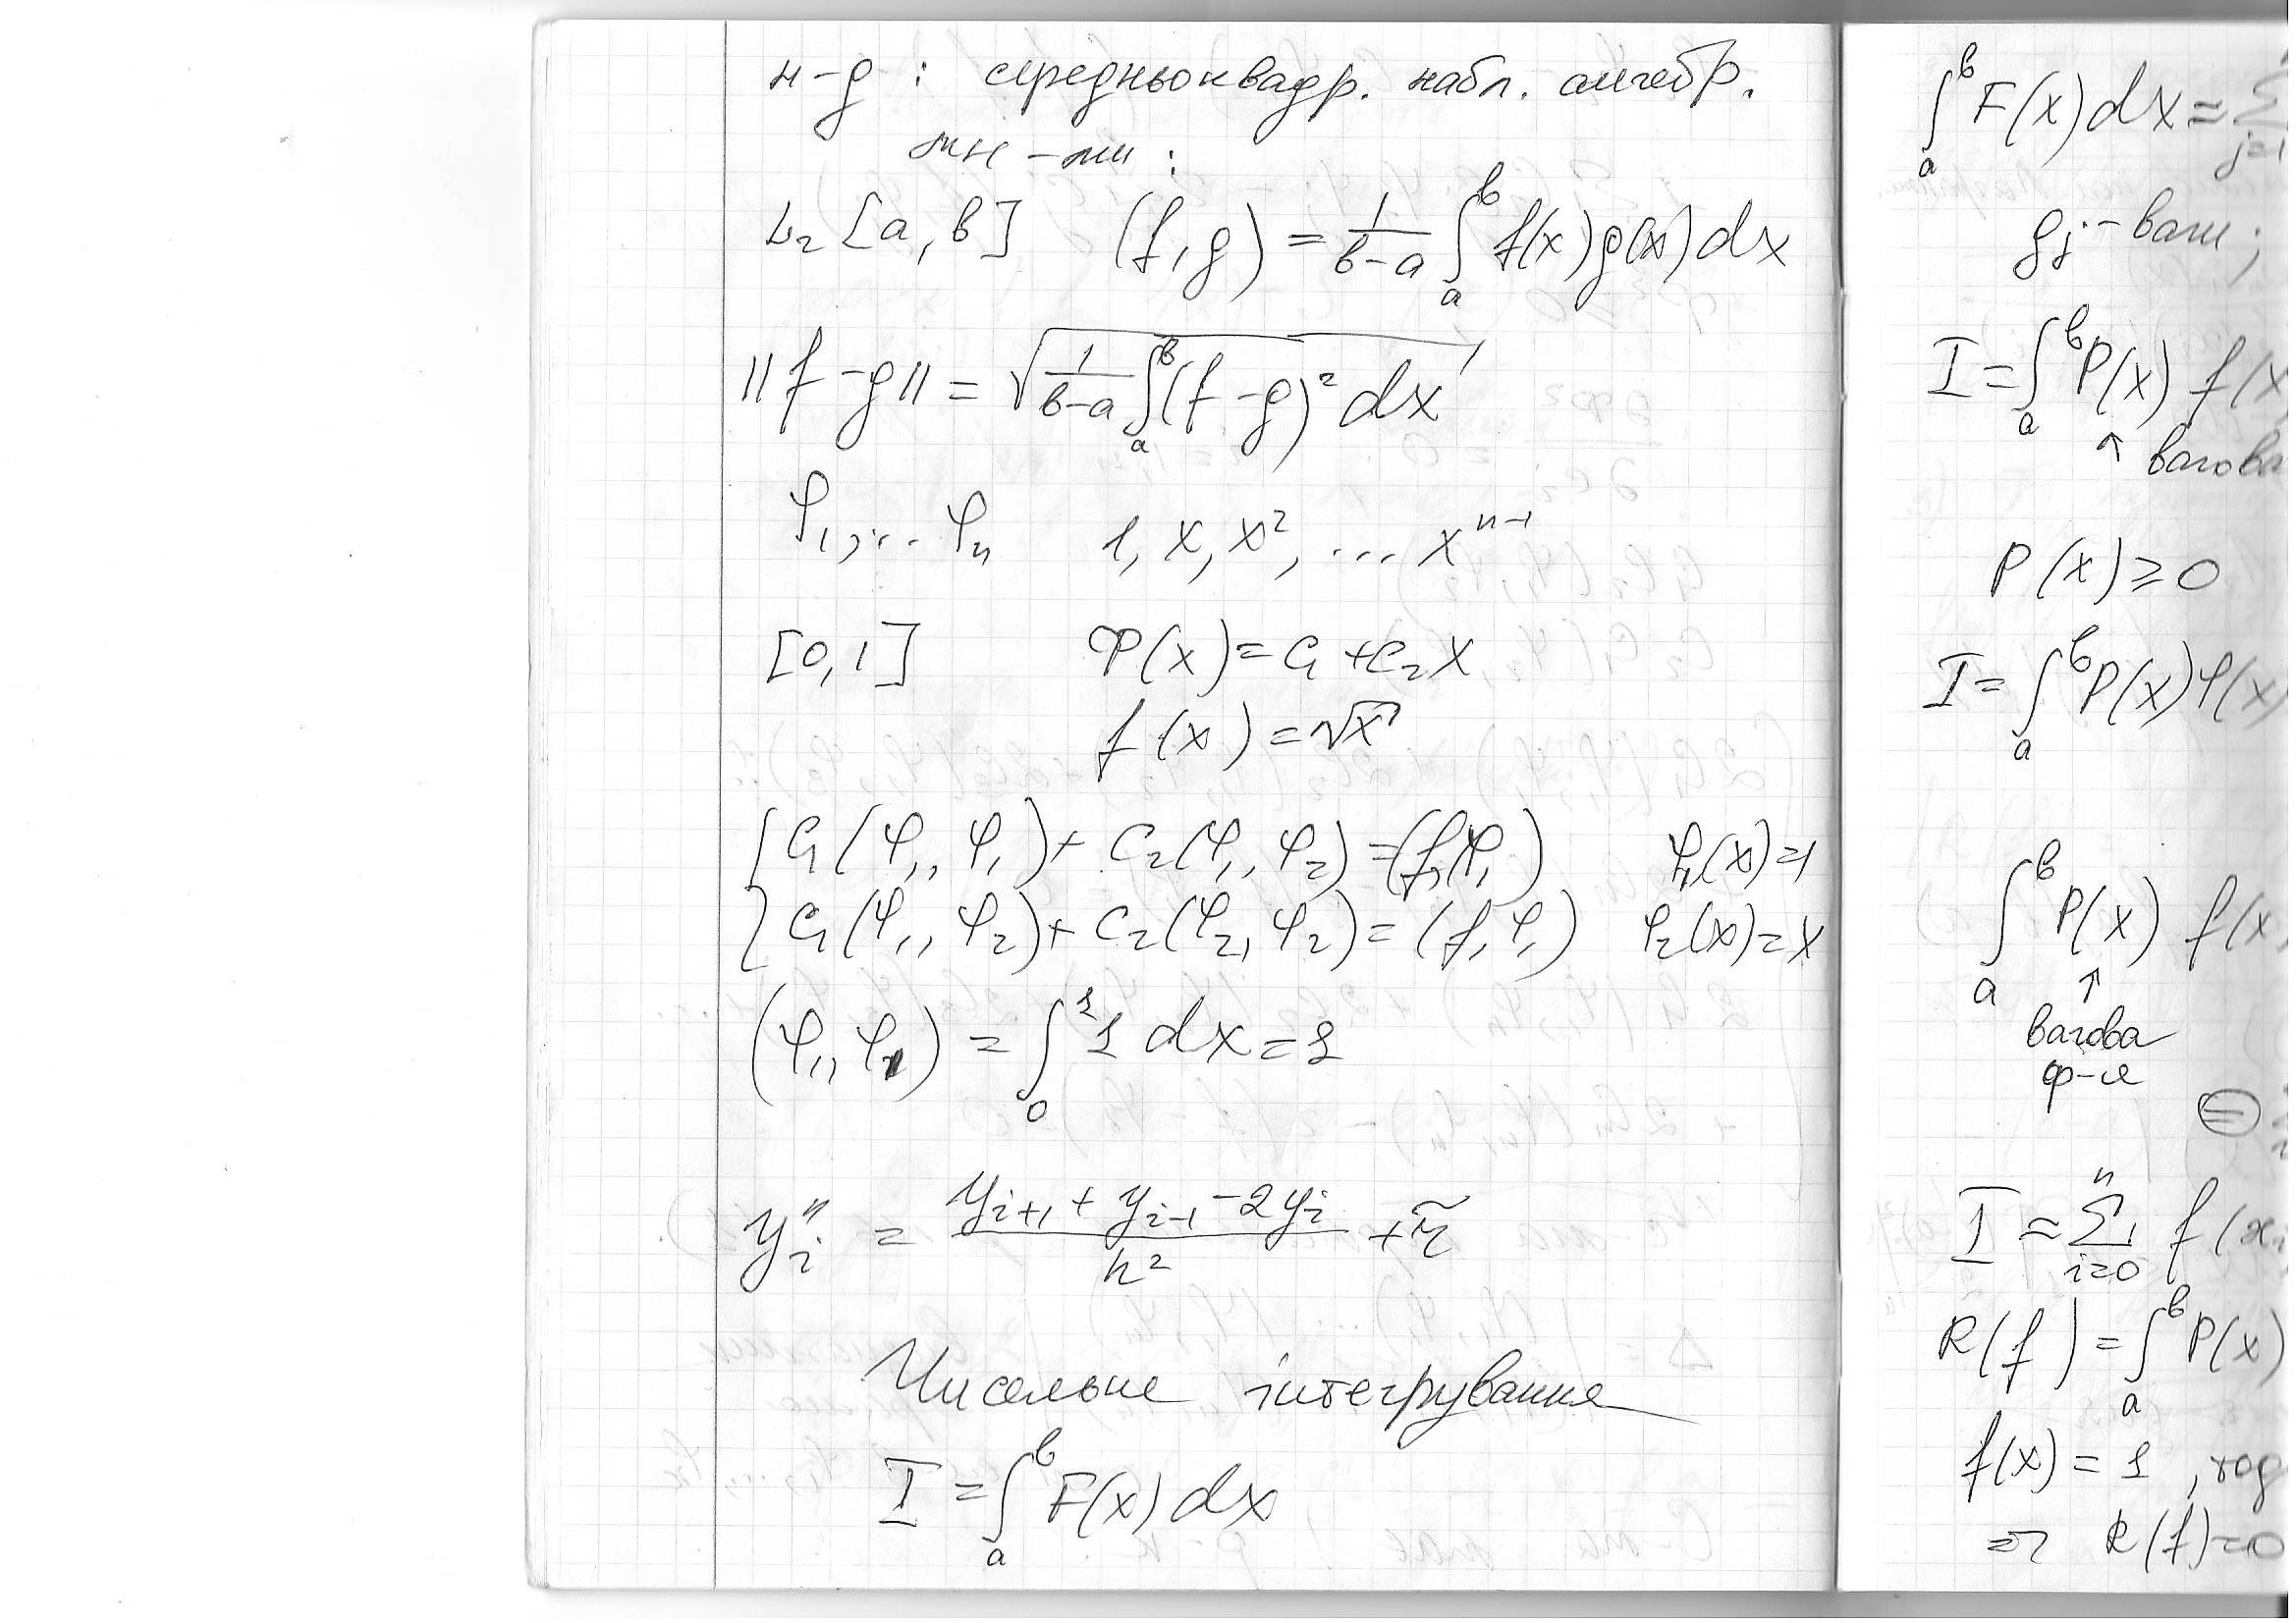 н-д : середньоквадр. набл. алгебр.
мн-ми :
L₂ [a, b] (f, g) = 1/(b-a) ∫ₐᵇ f(x)g(x)dx
||f - g|| = √(1/(b-a) ∫ₐᵇ (f - g)² dx)
φ₁, ... φₙ 1, x, x², ... xⁿ⁻¹
[0, 1] Φ(x) = c₁ + c₂x
f(x) = √x
{ c₁(φ₁, φ₁) + c₂(φ₁, φ₂) = (f, φ₁) φ₁(x) = 1
c₁(φ₁, φ₂) + c₂(φ₂, φ₂) = (f, φ₁) φ₂(x) = x
(φ₁, φ₁) = ∫₀¹ 1 dx = 1
yᵢ'' = (yᵢ₊₁ + yᵢ₋₁ - 2yᵢ)/h² + r̃
Чисельне інтегрування
I = ∫ₐᵇ F(x) dx
∫ₐᵇ F(x) dx ≈ Σ j=1
gj - ваги;
I = ∫ₐᵇ P(x) f(x
↑ вагова
P(x) ≥ 0
I = ∫ₐᵇ P(x) φ(x)
∫ₐᵇ P(x) f(x
↑
вагова
ф-я
⊜
I ≈ Σⁿ i=0 f(xᵢ
R(f) = ∫ₐᵇ P(x)
f(x) = 1 , тод
⇒ R(f) = 0